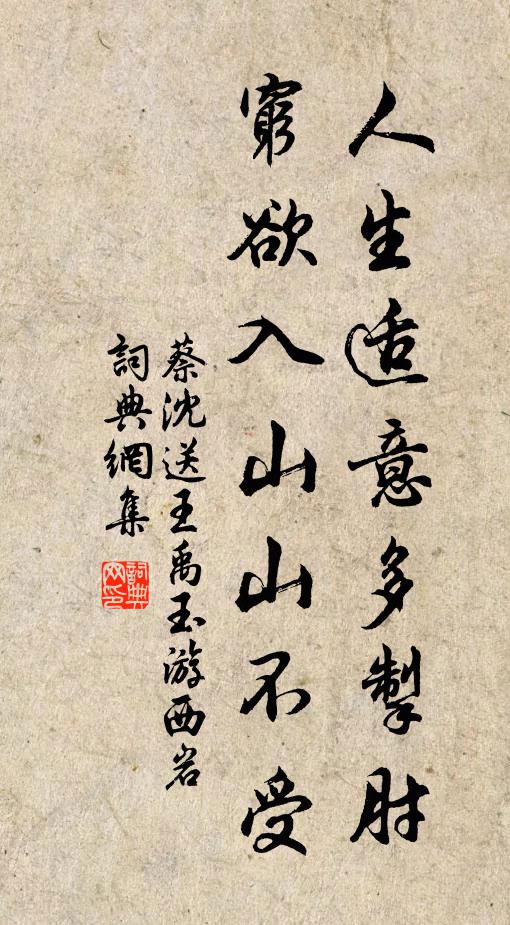 人生适意多掣肘
窮欲入山山不受
蔡沈送王禹玉游西岩
詞典網集
詞典
网印